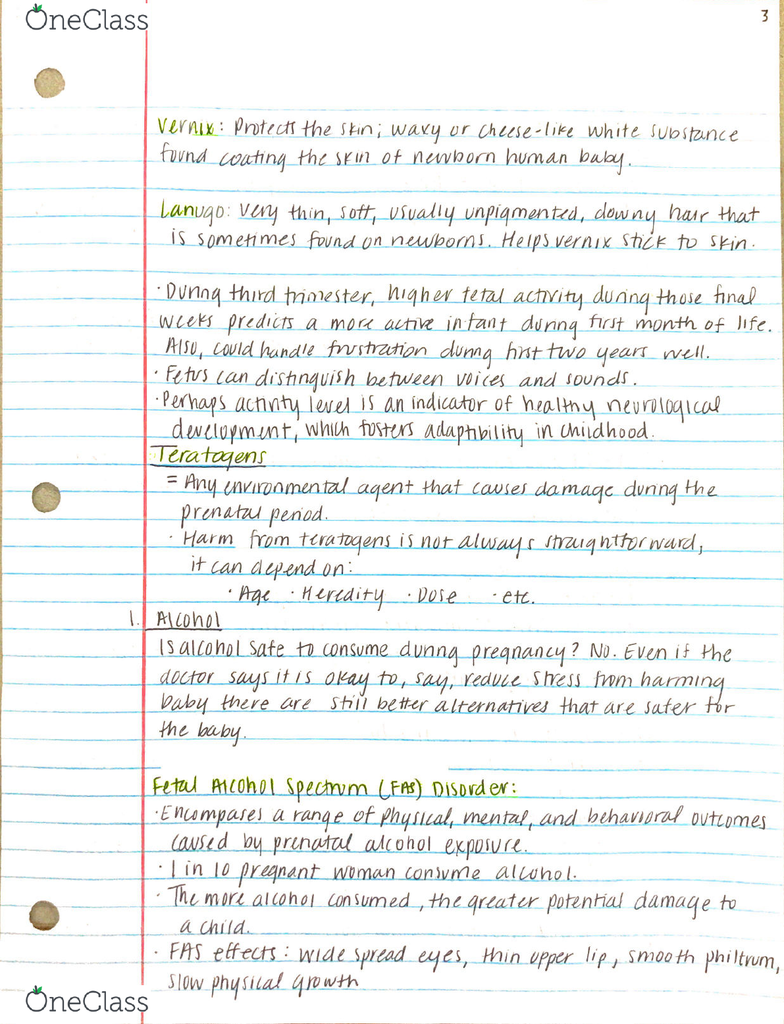 OneClass
3
Vernix: Protects the skin; waxy or cheese-like white substance
found coating the skin of newborn human baby.
Lanugo: Very thin, soft, usually unpigmented, downy hair that
is sometimes found on newborns. Helps vernix stick to skin.
· During third trimester, higher fetal activity during those final
weeks predicts a more active infant during first month of life.
Also, could handle frustration during first two years well.
· Fetus can distinguish between voices and sounds.
· Perhaps activity level is an indicator of healthy neurological
development, which fosters adaptibility in childhood.
Teratogens
= Any environmental agent that causes damage during the
prenatal period.
· Harm from teratogens is not always straightforward;
it can depend on:
· Age · Heredity · Dose · etc.
1. Alcohol
Is alcohol safe to consume during pregnancy? No. Even if the
doctor says it is okay to, say, reduce stress from harming
baby there are still better alternatives that are safer for
the baby.
Fetal Alcohol Spectrum (FAS) Disorder:
· Encompases a range of physical, mental, and behavioral outcomes
caused by prenatal alcohol exposure.
· 1 in 10 pregnant woman consume alcohol.
· The more alcohol consumed, the greater potential damage to
a child.
· FAS effects: wide spread eyes, thin upper lip, smooth philtrum,
slow physical growth
OneClass